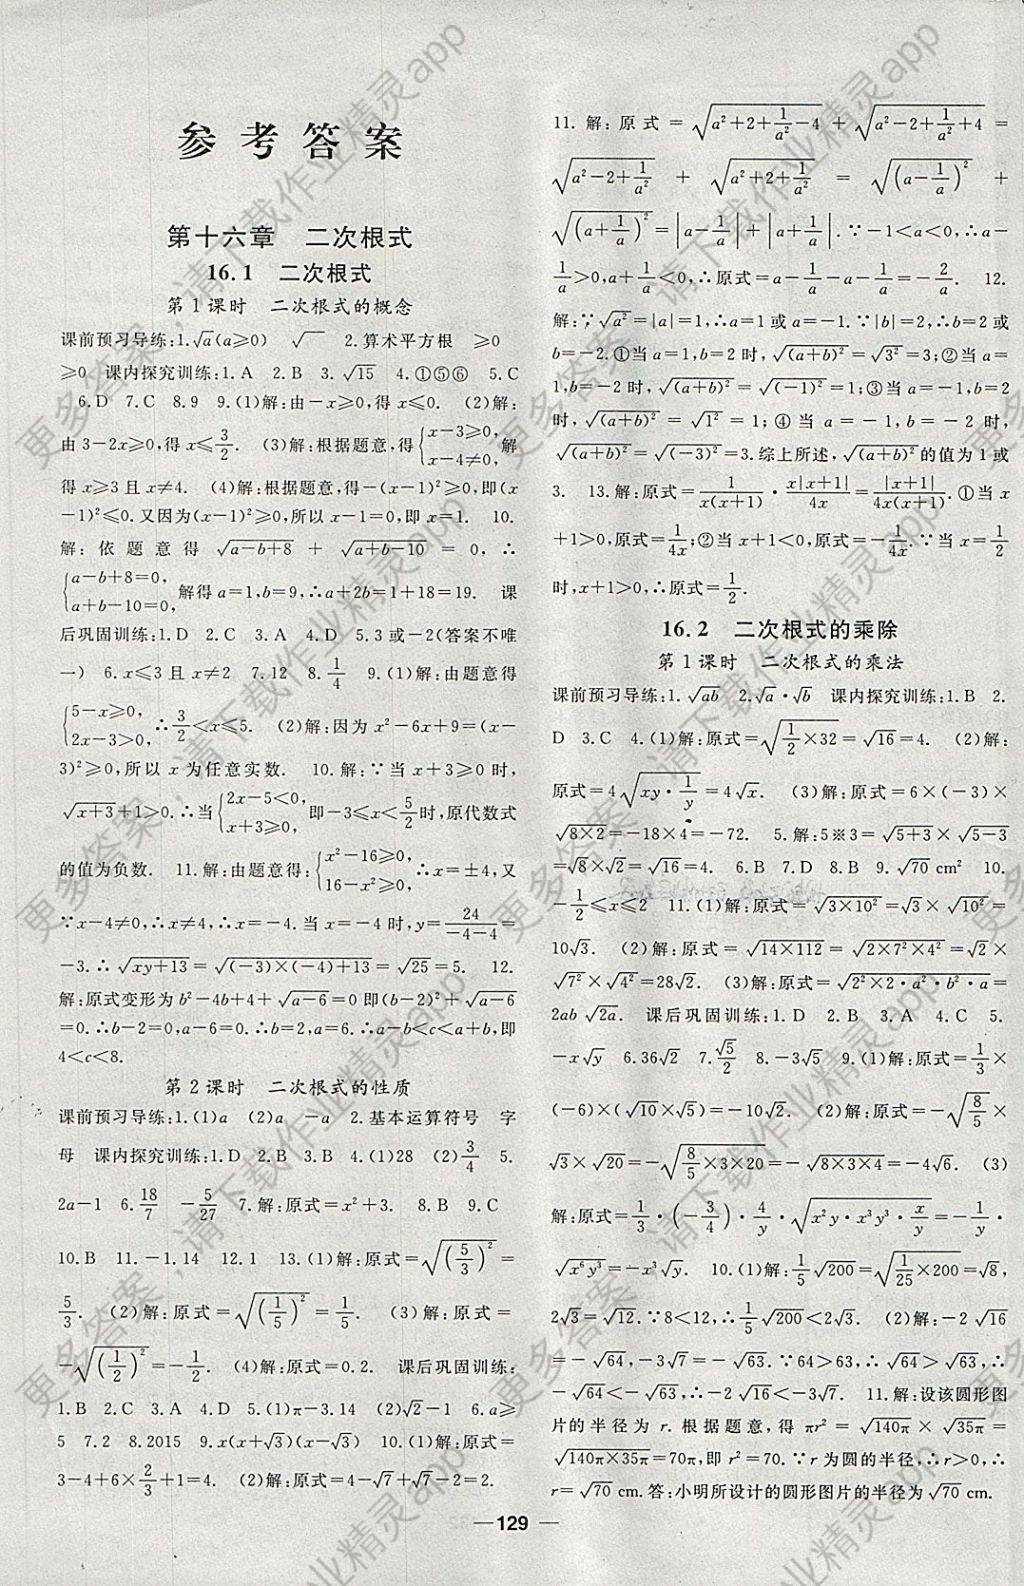 参考答案
第十六章 二次根式
16.1 二次根式
第1课时 二次根式的概念
课前预习导练:1.√a(a≥0) √‾ 2.算术平方根 ≥0
≥0 课内探究训练:1.A 2.B 3.√15 4.①⑤⑥ 5.C
6.D 7.C 8.9 9.(1)解:由-x≥0,得x≤0. (2)解:
由3-2x≥0,得x≤3/2. (3)解:根据题意,得{x-3≥0, x-4≠0, 解
得x≥3且x≠4. (4)解:根据题意,得-(x-1)²≥0,即(x
-1)²≤0.又因为(x-1)²≥0,所以x-1=0,即x=1. 10.
解:依题意得 √(a-b+8) + √(a+b-10) = 0,∴
{a-b+8=0, a+b-10=0, 解得a=1,b=9,∴a+2b=1+18=19. 课
后巩固训练:1.D 2.C 3.A 4.D 5.3或-2(答案不唯
一) 6.x≤3且x≠2 7.12 8.1/4 9.(1)解:由题意得
{5-x≥0, 2x-3>0, ∴3/2<x≤5. (2)解:因为x²-6x+9=(x-
3)²≥0,所以x为任意实数. 10.解:∵当x+3≥0时,
√(x+3)+1>0,∴当{2x-5<0, x+3≥0, 即-3≤x<5/2时,原代数式
的值为负数. 11.解:由题意得:{x²-16≥0, 16-x²≥0, ∴x=±4,又
∵x-4≠0,∴x≠4,∴x=-4.当x=-4时,y=24/(-4-4)=
-3.∴√(xy+13)=√((-3)×(-4)+13)=√25=5. 12.
解:原式变形为b²-4b+4+√(a-6)=0即(b-2)²+√(a-6)
=0.∴b-2=0,a-6=0.∴b=2,a=6.∴a-b<c<a+b,即
4<c<8.
第2课时 二次根式的性质
课前预习导练:1.(1)a (2)a -a 2.基本运算符号 字
母 课内探究训练:1.D 2.B 3.B 4.(1)28 (2)3/4 5.
2a-1 6.18/7 -5/27 7.解:原式=x²+3. 8.B 9.C
10.B 11.-1.14 12.1 13.(1)解:原式=√((5/3)²)=
5/3. (2)解:原式=√((1/5)²)=1/5. (3)解:原式=
-√((1/2)²)=-1/2. (4)解:原式=0.2. 课后巩固训练:
1.B 2.C 3.A 4.D 5.(1)π-3.14 (2)√2-1 6.a≥
5 7.2 8.2015 9.x(x+√3)(x-√3) 10.(1)解:原式=
3-4+6×2/3+1=4. (2)解:原式=4-√7+√7-2=2.
11.解:原式=√(a²+2+1/a²-4)+√(a²-2+1/a²+4)=
√(a²-2+1/a²) + √(a²+2+1/a²) = √((a-1/a)²) +
√((a+1/a)²)=|a-1/a|+|a+1/a|.∵-1<a<0,∴a-
1/a>0,a+1/a<0,∴原式=a-1/a-a-1/a=-2/a. 12.
解:∵√(a²)=|a|=1,∴a=1或a=-1.∵|b|=2,∴b=2或
b=-2.①当a=1,b=2时,√((a+b)²)=√(3²)=3;②当a=
1,b=-2时,√((a+b)²)=√((-1)²)=1;③当a=-1,b=2
时,√((a+b)²)=√(1²)=1;④当a=-1,b=-2时,
√((a+b)²)=√((-3)²)=3.综上所述,√((a+b)²)的值为1或
3. 13.解:原式=1/(x(x+1))·x|x+1|/4x=|x+1|/(4x(x+1)).①当x
+1>0,原式=1/4x;②当x+1<0,原式=-1/4x.∵当x=1/2
时,x+1>0,∴原式=1/2.
16.2 二次根式的乘除
第1课时 二次根式的乘法
课前预习导练:1.√(ab) 2.√a·√b 课内探究训练:1.B 2.
D 3.C 4.(1)解:原式=√(1/2×32)=√16=4. (2)解:
原式=4√(xy·1/y)=4√x. (3)解:原式=6×(-3)×
√(8×2)=-18×4=-72. 5.解:5※3=√(5+3)×√(5-3)
=√8×√2=√16=4. 6.B 7.D 8.B 9.√70 cm² 10.
-1/2≤x≤2 11.(1)解:原式=√(3×10²)=√3×√(10²)=
10√3. (2)解:原式=√(14×112)=√(2×7²×4²)=√2×
√(7²)×√(4²)=28√2. (3)解:原式=√(2²×2·a²·b²·a)=
2ab√(2a). 课后巩固训练:1.D 2.B 3.A 4.C 5.
-x√y 6.36√2 7.√5/2 8.-3√5 9.(1)解:原式=1/3×
(-6)×(√10×√5)=-10√2. (2)解:原式=-√(8/5)×
√3×√20=-√(8/5×3×20)=-√(8×3×4)=-4√6. (3)
解:原式=1/3·(-3/4)·4/y·√(x²y·x³y³·x/y)=-1/y·
√(x⁶y³)=-x³√y. 10.(1)解:1/5√200=√(1/25×200)=√8,
2√3=√12.∵8<12,∴1/5√200<2√3. (2)解:-2√16
=-√64,-3√7=-√63.∵64>63,∴√64>√63,∴
-√64<-√63,∴-2√16<-3√7. 11.解:设该圆形图
片的半径为r.根据题意,得πr²=√(140π)×√(35π)=
√(140π×35π)=70π,即r²=70.∵r为圆的半径,∴r>0,∴
r=√70 cm.答:小明所设计的圆形图片的半径为√70 cm.
— 129 —
更多答案,请下载作业精灵app